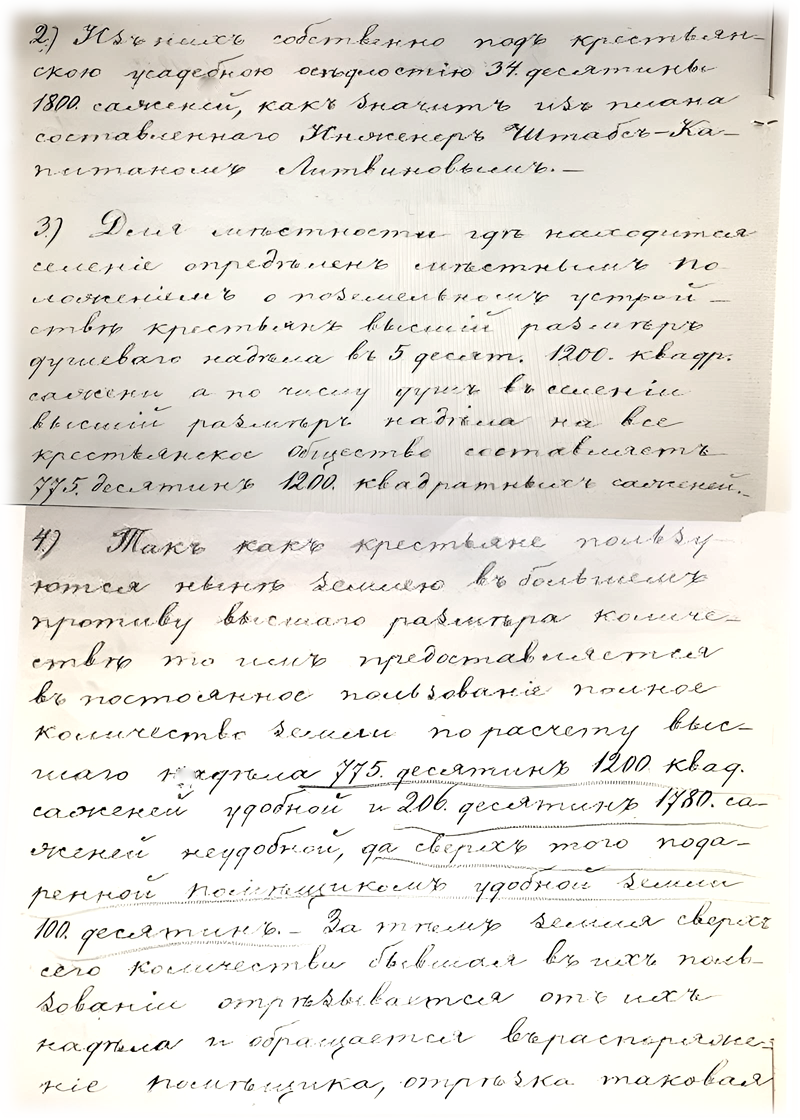 2.) Изъ нихъ собственно подъ крестьян-
скою усадебною осѣдлостію 34. десятины
1800. саженей, какъ значитъ изъ плана
составленнаго Инженеръ Штабсъ-Ка-
питаномъ Литвиновымъ. –
3.) Для мѣстности гдѣ находится
селеніе опредѣленъ мѣстнымъ по
ложеніемъ о поземельномъ устрой –
ствѣ крестьянъ высшій размѣръ
душеваго надѣла въ 5 десят. 1200. квадр.
сажени а по числу душъ въ селеніи
высшій размѣръ надѣла на все
крестьянское общество составляетъ
775. десятинъ 1200. квадратныхъ саженей. –
4.) Такъ какъ крестьяне пользу-
ются нынѣ землею въ большемъ
противу высшаго размѣра количе-
ствѣ то имъ предоставляется
въ постоянное пользованіе полное
количество земли по расчету выс-
шаго надѣла 775. десятинъ 1200. квад.
саженей удобной и 206. десятинъ 1780. са-
женей неудобной, да сверхъ того пода-
ренной помѣщикомъ удобной земли
100. десятинъ. – За тѣмъ земля сверхъ
сего количества бывшая въ ихъ поль-
зованіи отрѣзывается отъ ихъ
надѣла и обращается въ распоряже-
ніе помѣщика, отрѣзка таковая